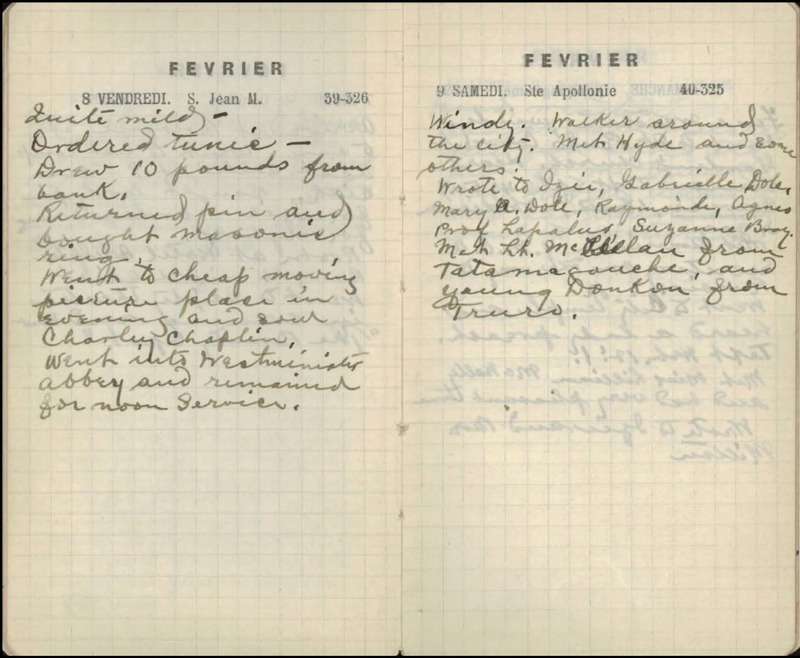 FEVRIER
8 VENDREDI. S. Jean M. 39-326
Quite mild –
Ordered tunic –
Drew 10 pounds from
bank.
Returned pin and
bought masonic
ring.
Went to cheap moving
picture place in
evening and saw
Charley Chaplin.
Went into Westminister
abbey and remained
for noon Service.
FEVRIER
9 SAMEDI. Ste Apollonie 40-325
Windy. Walker around
the city. Met Hyde and some
others.
Wrote to Izie, Gabrielle Dole,
Mary A. Dole, Raymonde, Agnes
Prof Lapalus, Suzanne Bray.
Met Lt. McLellan from
Tatamagouche, and
young Donkon from
Truro.